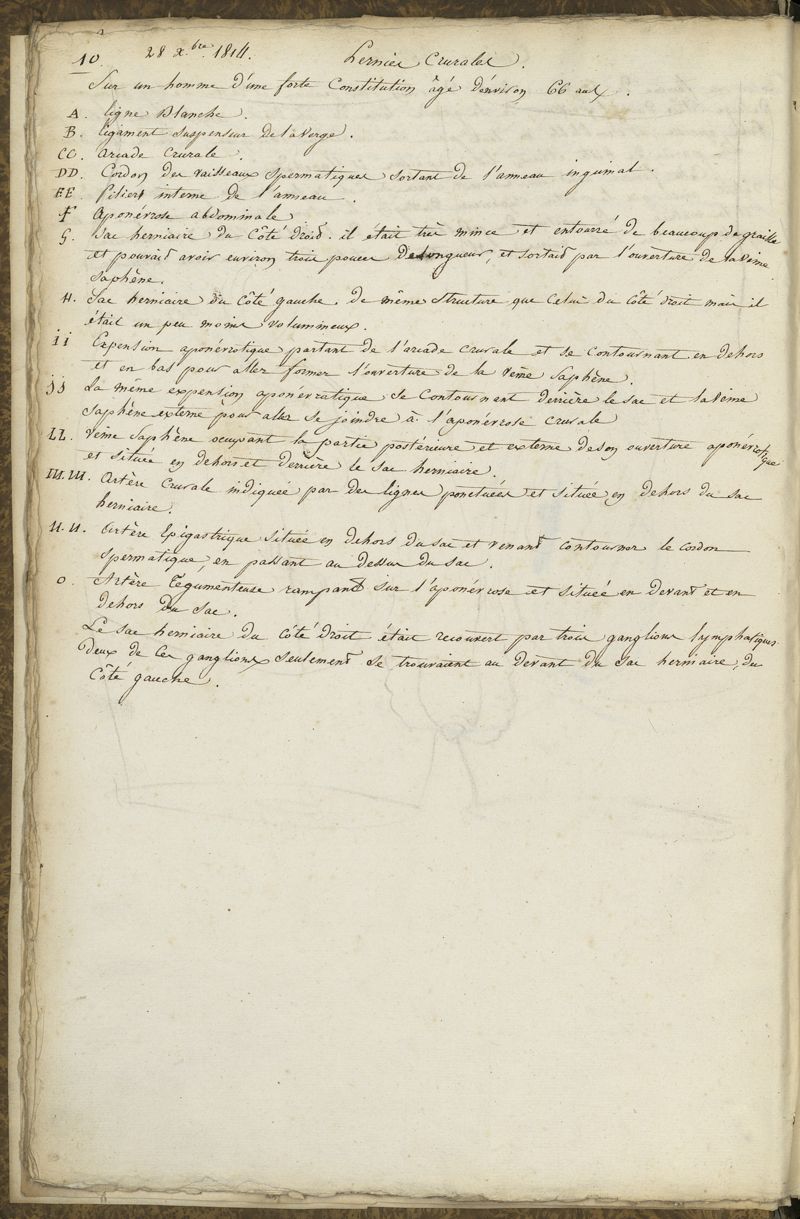 10. 28 Xbre 1814. hernies Crurales.
Sur un homme d'une forte Constitution âgé d'environ 66 ans.
A. ligne Blanche.
B. ligament suspenseur de la Verge.
CC. arcade Crurale.
DD. Cordon des vaisseaux spermatiques sortant de l'anneau inguinal.
EE. Piliers interne de l'anneau.
F Aponévrose abdominale
G. Sac herniaire du Côté droit. il était très mince et entourré de beaucoup de graisse
et pouvait avoir environ trois pouces de longueur, et sortait par l'ouverture de la veine
Saphène.
H. Sac herniaire du côté gauche. de même structure que Celui du côté droit mais il
était un peu moins volumineux.
ii Expension aponévrotique partant de l'arcade crurale et se contournant en dehors
et en bas pour aller former l'ouverture de la veine Saphène.
jj La même expension aponevratique se contournant derrière le sac et la veine
Saphène externe pour aller se joindre à l'aponévrose crurale
LL. Veine Saphène occupant la partie postérieure et externe de son ouverture aponévrotique
et située en dehors et derrière le sac herniaire.
M.M. Artère Crurale indiquée par des lignes ponctuées et située en dehors du sac
herniaire.
N.N. Artère Epigastrique située en dehors du sac et venant contourner le cordon
Spermatique, en passant au dessus du sac.
O. Artère Tegumenteuse rampant sur l'aponévrose et située en devant et en
dehors du sac.
Le sac herniaire du côté droit était recouvert par trois ganglions lymphatiques.
deux de ces ganglions seulement se trouvaient au devant du sac herniaire, du
Côté gauche.